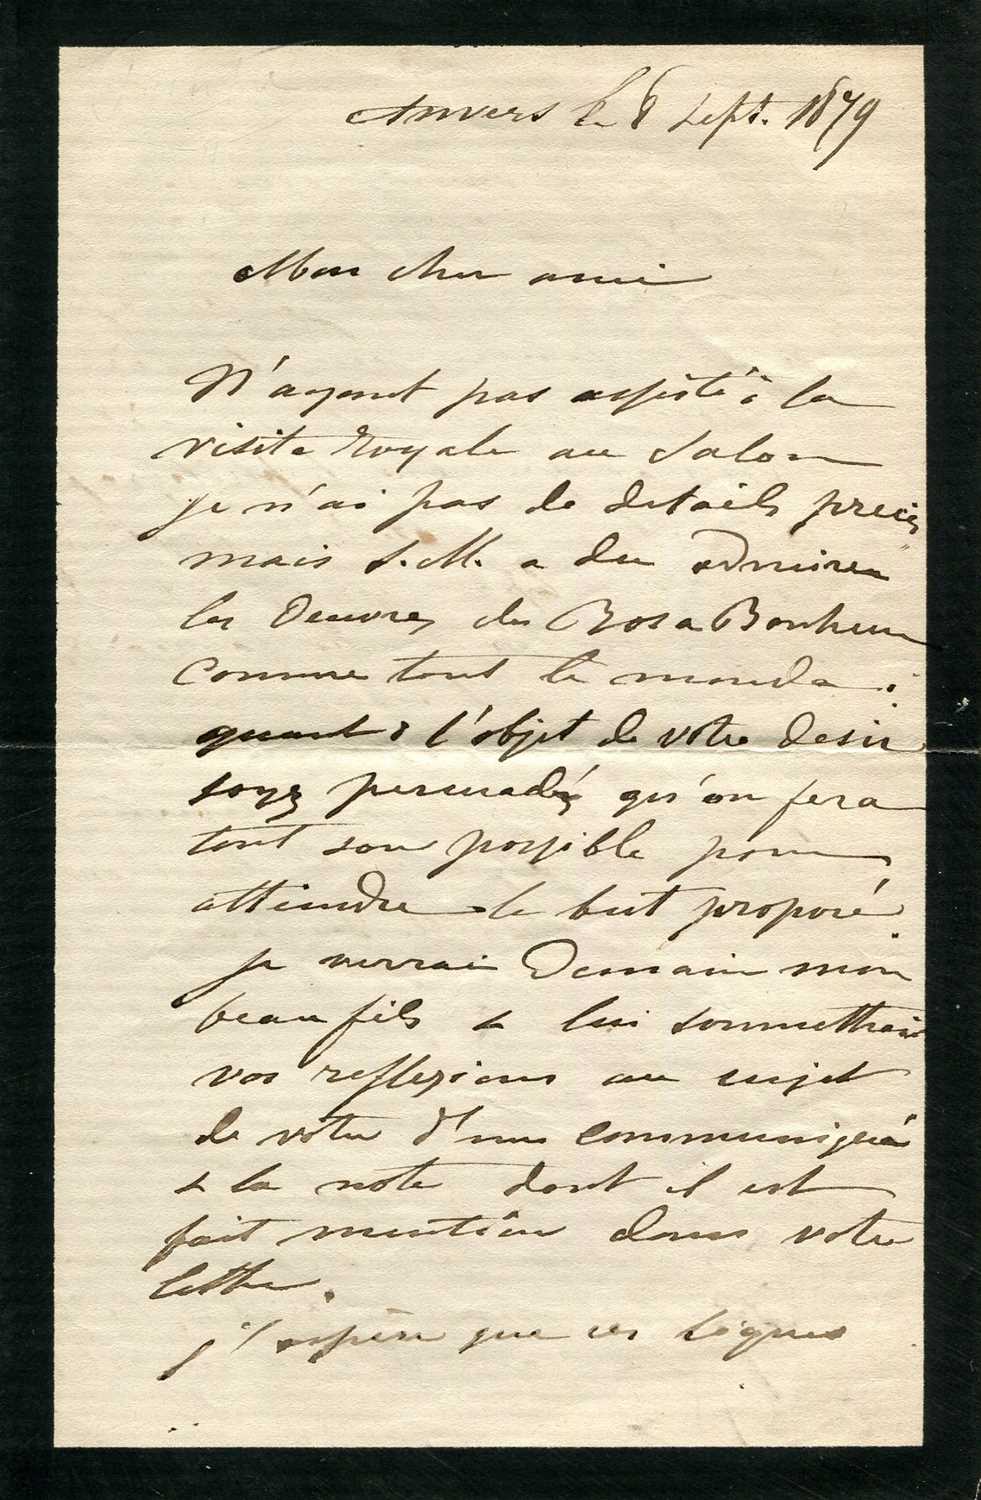 Anvers le 8 Sept. 1879
Mon cher ami
N'ayant pas assisté à la
visite Royale au Salon
je n'ai pas de détails précis
mais S. M. a du admirer
les Oeuvres de Rosa Bonheur
comme tout le monde :
quant à l'objet de votre desir
soyez persuadé qu'on fera
tout son possible pour
atteindre le but proposé.
je verrai Demain mon
beau fils & lui soummettrai
vos reflexions au sujet
de votre d'une communiqué
& la note dont il est
fait mention dans votre
lettre.
j'espère que ces lignes